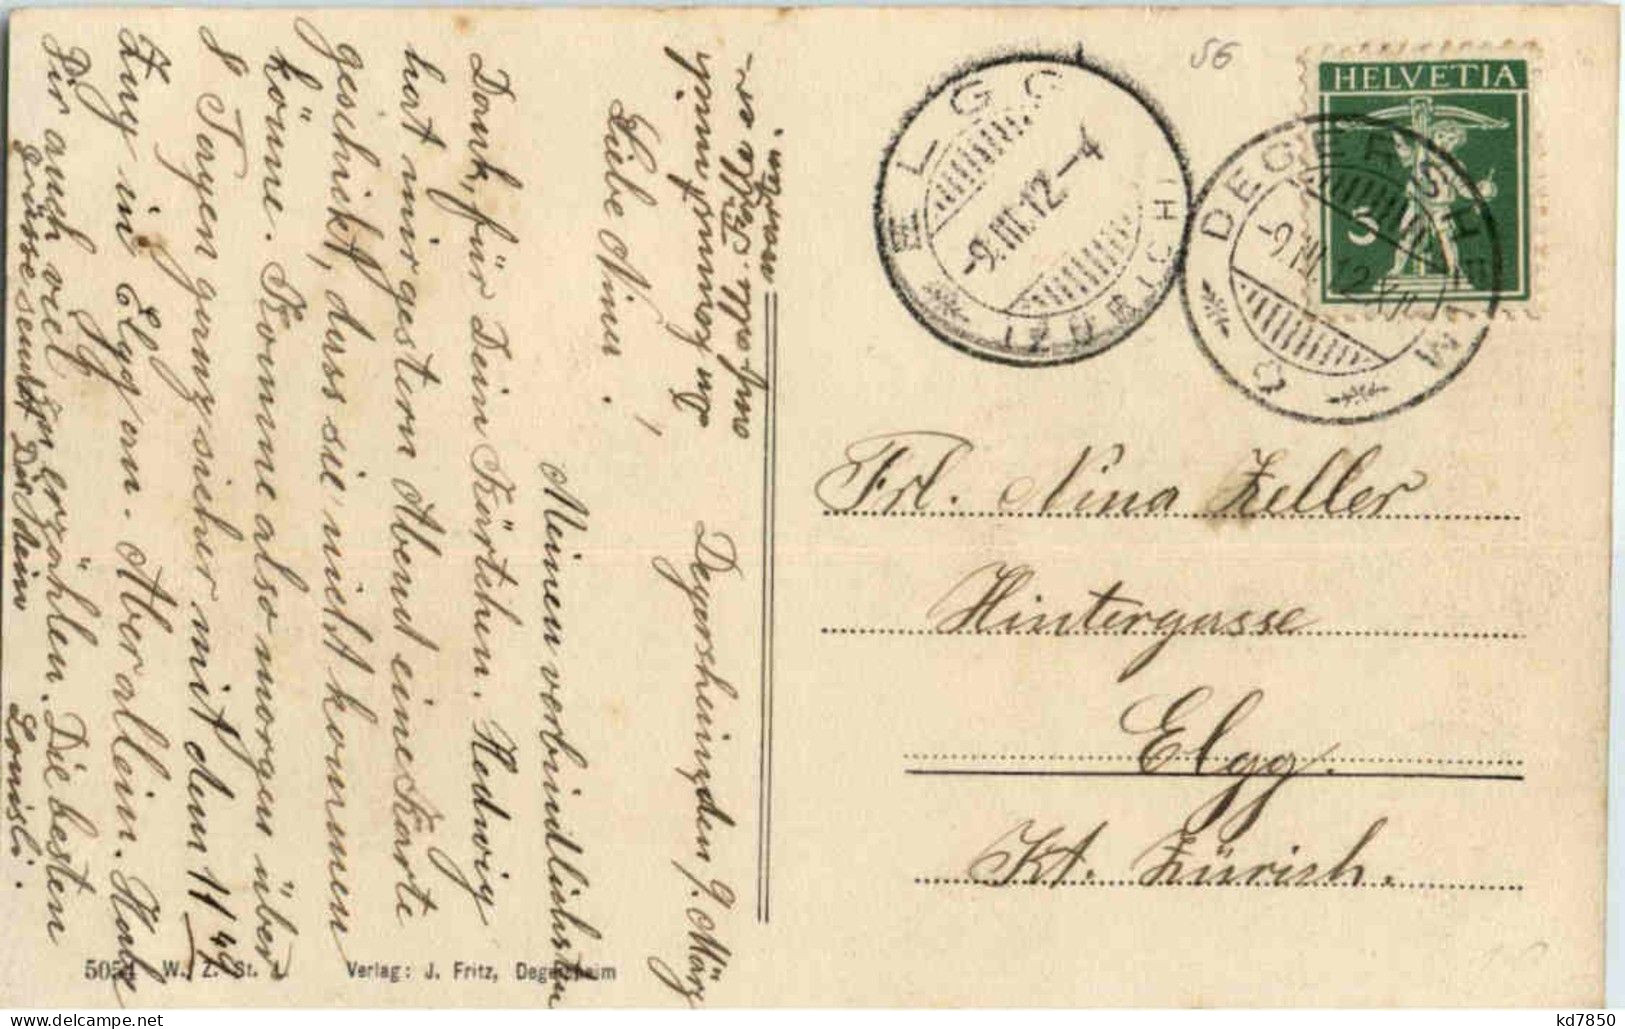 Degersheim, den 9. März
Liebe Nina!
Meinen verbindlichsten
Dank, für Dein Kärtchen. Hedwig
hat mir gestern Abend eine Karte
geschickt, dass sie nicht kommen
könne. Komme also morgen über
8 Tagen ganz sicher mit dem 11 49
Zug in Elgg an. Aber allein. Habe
Dir auch viel zu erzählen. Die besten
Grüsse sendet Dir Dein
Louisli.
5054 W. Z. St. G. Verlag: J. Fritz, Degersheim
56
HELVETIA
5
ELGG
-9.III.12.-4
(ZÜRICH)
DEGERSHEIM
-9.III.12.XII
Frl. Nina Zeller
Hintergasse
Elgg.
Kt. Zürich.
kd7850